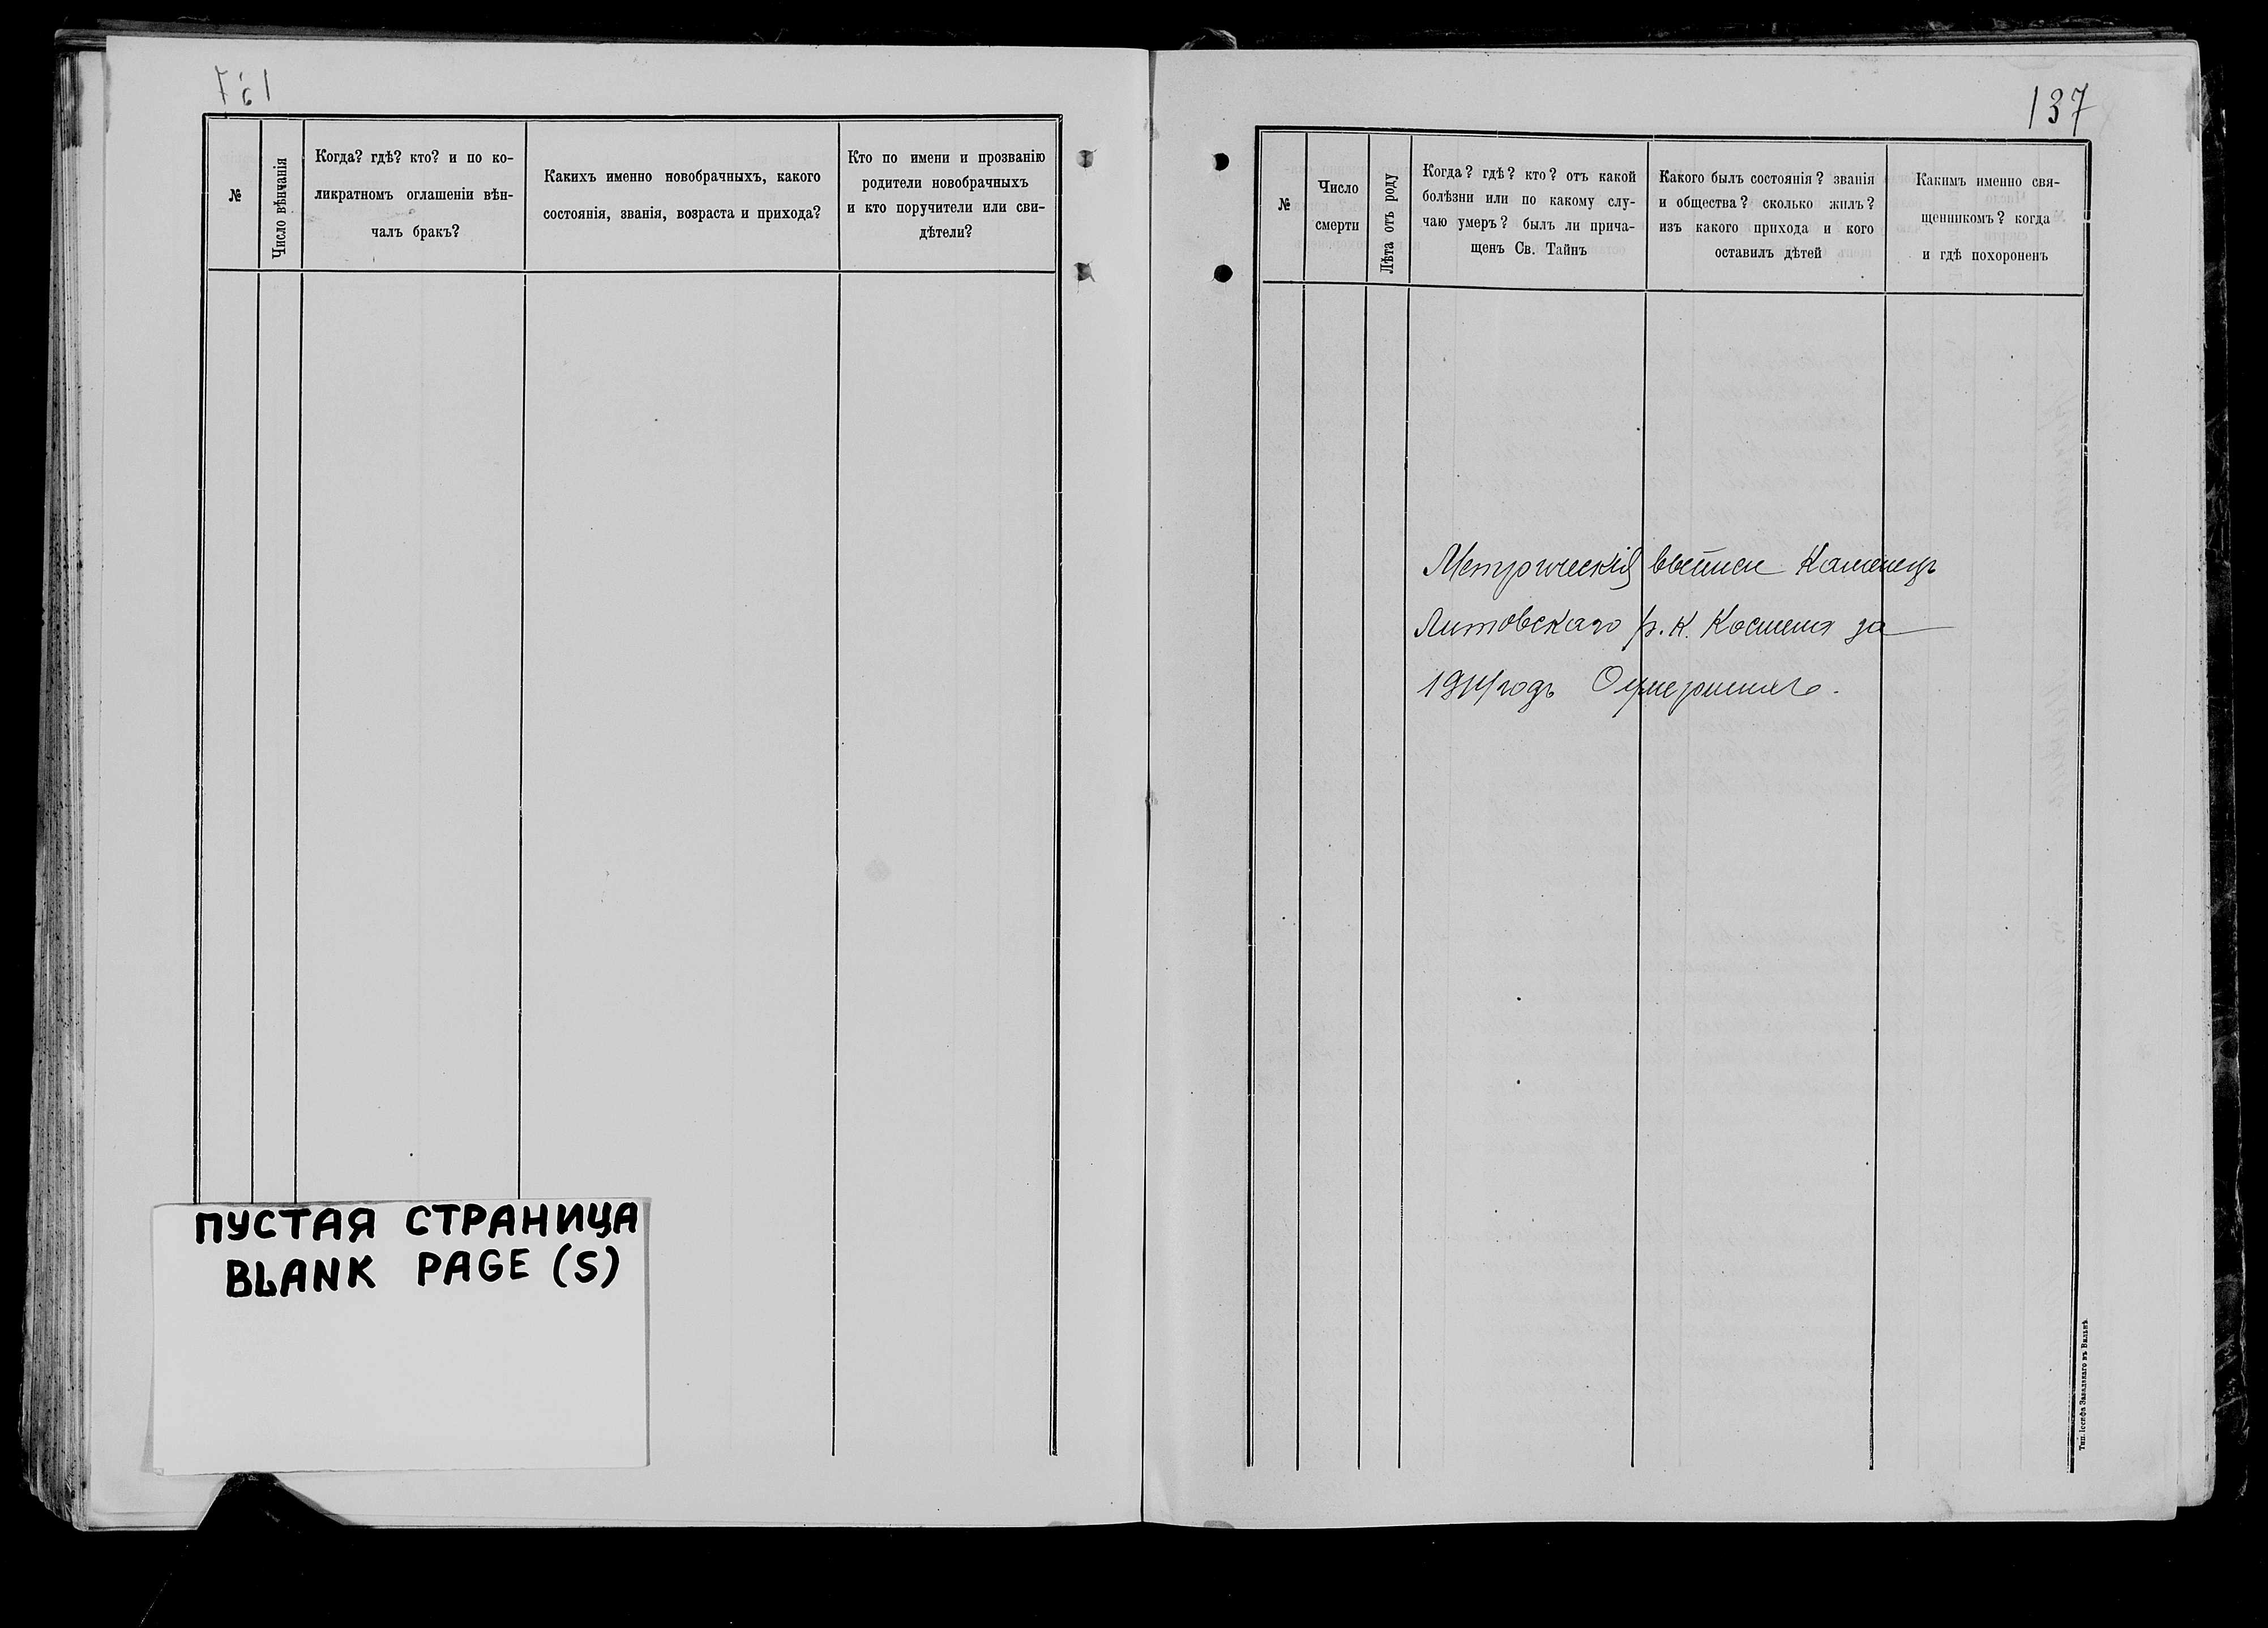 №
Число вѣнчанія
Когда? гдѣ? кто? и по ко-
ликратномъ оглашеніи вѣн-
чалъ бракъ?
Какихъ именно новобрачныхъ, какого
состоянія, званія, возраста и прихода?
Кто по имени и прозванію
родители новобрачныхъ
и кто поручители или сви-
дѣтели?
ПУСТАЯ СТРАНИЦА
BLANK PAGE (S)
137
№
Число
смерти
Лѣта отъ роду
Когда? гдѣ? кто? отъ какой
болѣзни или по какому слу-
чаю умеръ? былъ ли прича-
щенъ Св. Тайнъ
Какого былъ состоянія? званія
и общества? сколько жилъ?
изъ какого прихода и кого
оставилъ дѣтей
Какимъ именно свя-
щенникомъ? когда
и гдѣ похороненъ
Метрическія выписи Каменецъ
Литовскаго р. К. Костела за
1914 годъ О умершихъ.
Тип. Іосифа Завадзкаго въ Вильнѣ.